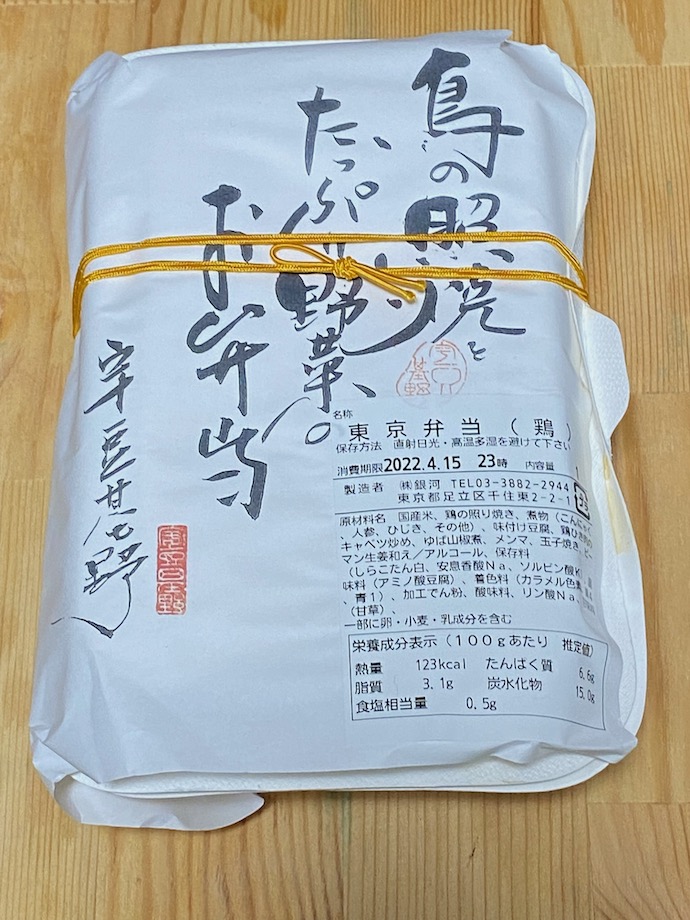 鳥の照焼と
たっぷり野菜の
お弁当
宇豆基野
名称
東京弁当(鶏)
保存方法 直射日光・高温多湿を避けて下さい
消費期限 2022.4.15 23時 内容量 1
製造者 ㈱銀河 TEL03-3882-2944
東京都足立区千住東2-2-1
原材料名 国産米、鶏の照り焼き、煮物(こんにゃく
、人参、ひじき、その他)、味付け豆腐、鶏ひき
キャベツ炒め、ゆば山椒煮、メンマ、玉子焼き、ピー
マン生姜和え/アルコール、保存料
(しらこたん白、安息香酸Na、ソルビン酸K)
味料(アミノ酸豆腐)、着色料(カラメル色素
、青1)、加工でん粉、酸味料、リン酸Na、
(甘草)、
一部に卵・小麦・乳成分を含む
栄養成分表示(100gあたり 推定値)
熱量 123kcal たんぱく質 6.6g
脂質 3.1g 炭水化物 15.0g
食塩相当量 0.5g